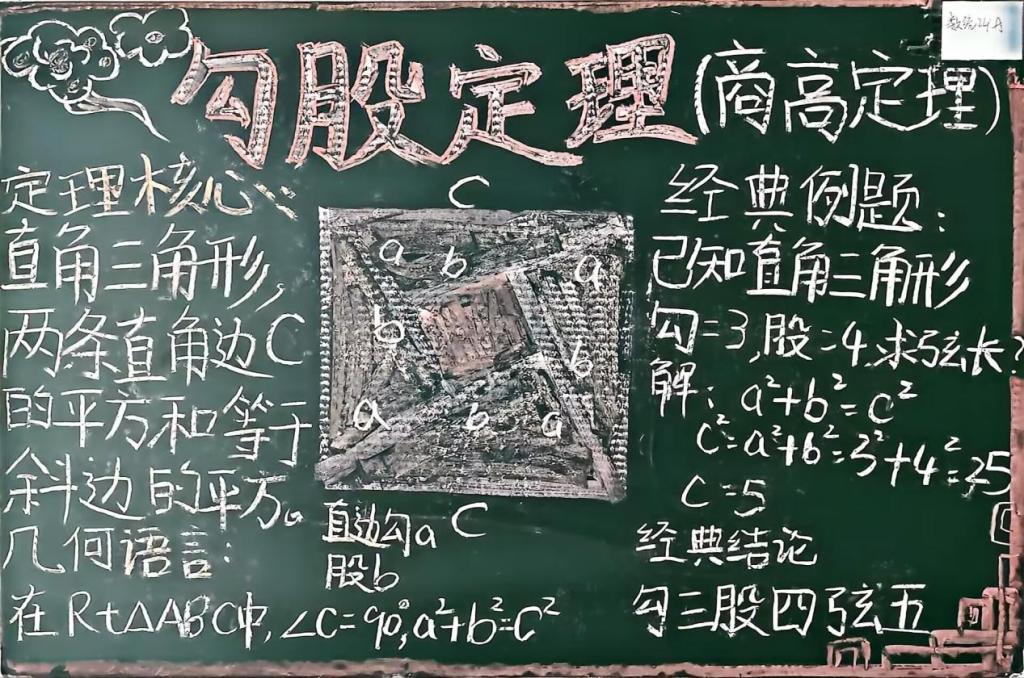 勾股定理(商高定理)
定理核心:
直角三角形,
两条直角边C
的平方和等于
斜边的平方。
几何语言:
在Rt△ABC中,∠C=90°,a²+b²=C²
C
a b a
b b
a b a
C
直边勾a
股b
经典例题:
已知直角三角形
勾=3,股=4,求弦长?
解:a²+b²=c²
c²=a²+b²=3²+4²=25
C=5
经典结论
勾三股四弦五